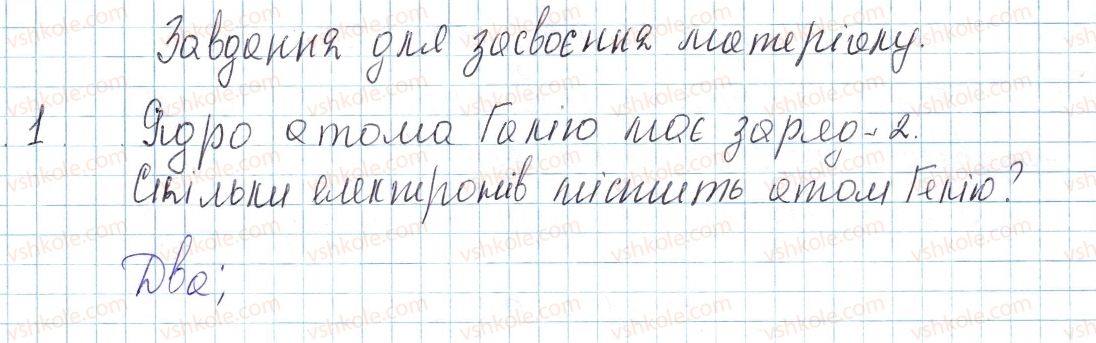 Завдання для засвоєння матеріалу.
1. Ядро атома Галію має заряд - 2.
Скільки електронів містить атом Гелію?
Два;